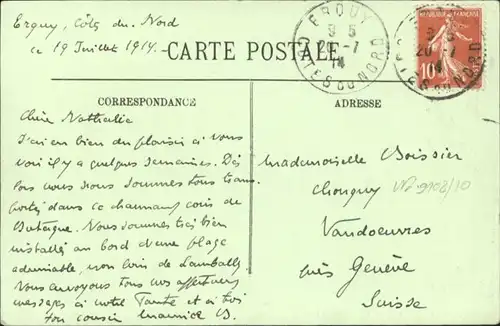 Erquy, Côtes du Nord
ce 19 Juillet 1914.
CARTE POSTALE
ERQUY
9 5
20 -7
14
COTES DU NORD
REPUBLIQUE FRANCAISE
10
CORRESPONDANCE
ADRESSE
Chère Nathalie
J'ai eu bien du plaisir à vous
voir il y a quelques semaines. Dès
lors nous nous sommes tous trans
portés dans ce charmant coin de
Bretagne. Nous sommes très bien
installés au bord d'une plage
admirable, non loin de Lamballe
Nous envoyons tous nos affectueux
messages à votre Tante et à toi
ton cousin Maurice B.
Mademoiselle Boissier
Chougny
Vandoeuvres
près Genève
Suisse